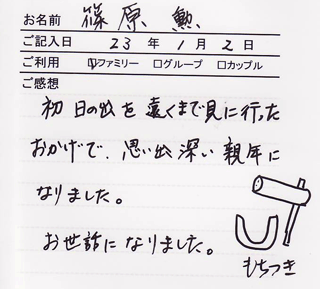 お名前 篠原 勲
ご記入日 23年1月2日
ご利用 ☑ファミリー □グループ □カップル
ご感想
初日の出を遠くまで見に行った
おかげで、思い出深い新年に
なりました。
お世話になりました。
もちつき